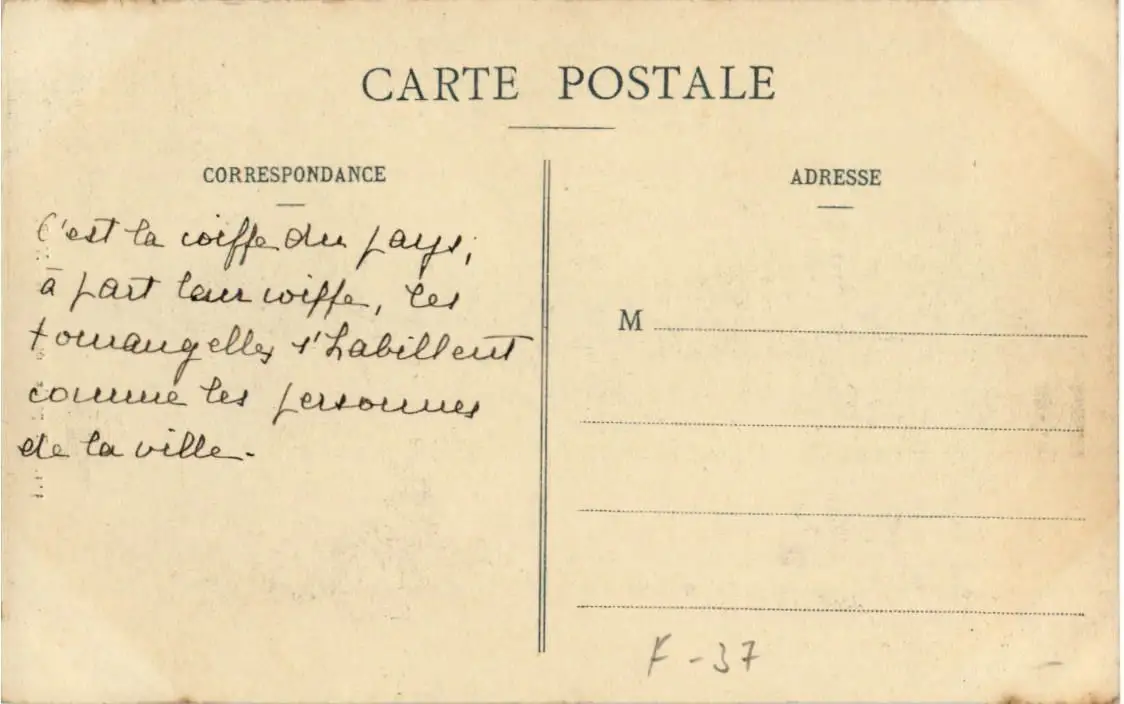 CARTE POSTALE
CORRESPONDANCE
C'est la coiffe du pays,
à part leur coiffe, les
tourangelles s'habillent
comme les personnes
de la ville.
ADRESSE
M
F-37